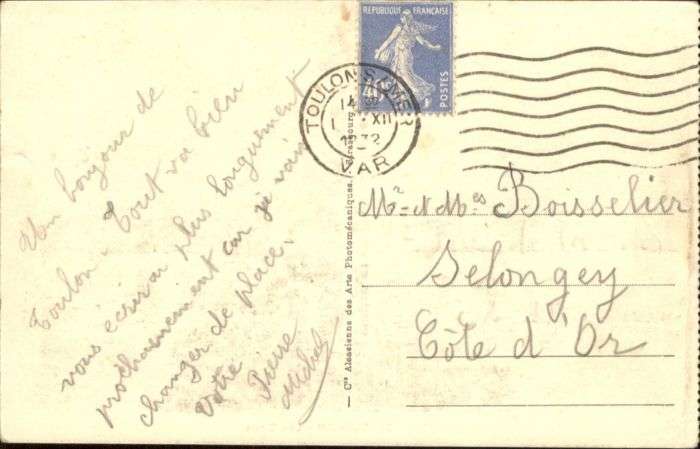 Un bonjour de
Toulon. Tout va bien
vous écrirai plus longuement
prochainement car je vais
changer de place.
Votre Pierre
Michel
REPUBLIQUE FRANÇAISE
40c
POSTES
TOULON S. MER
14
XII
1932
VAR
Cie Alsacienne des Arts Photomécaniques, Strasbourg
Mr et Mes Boisselier
Selongey
Côte d'Or